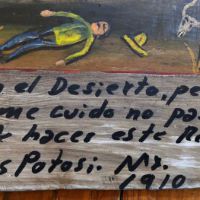 n el Desierto, pe
me cuido no pa
hacer este Re
s Potosi. Mx.
1910